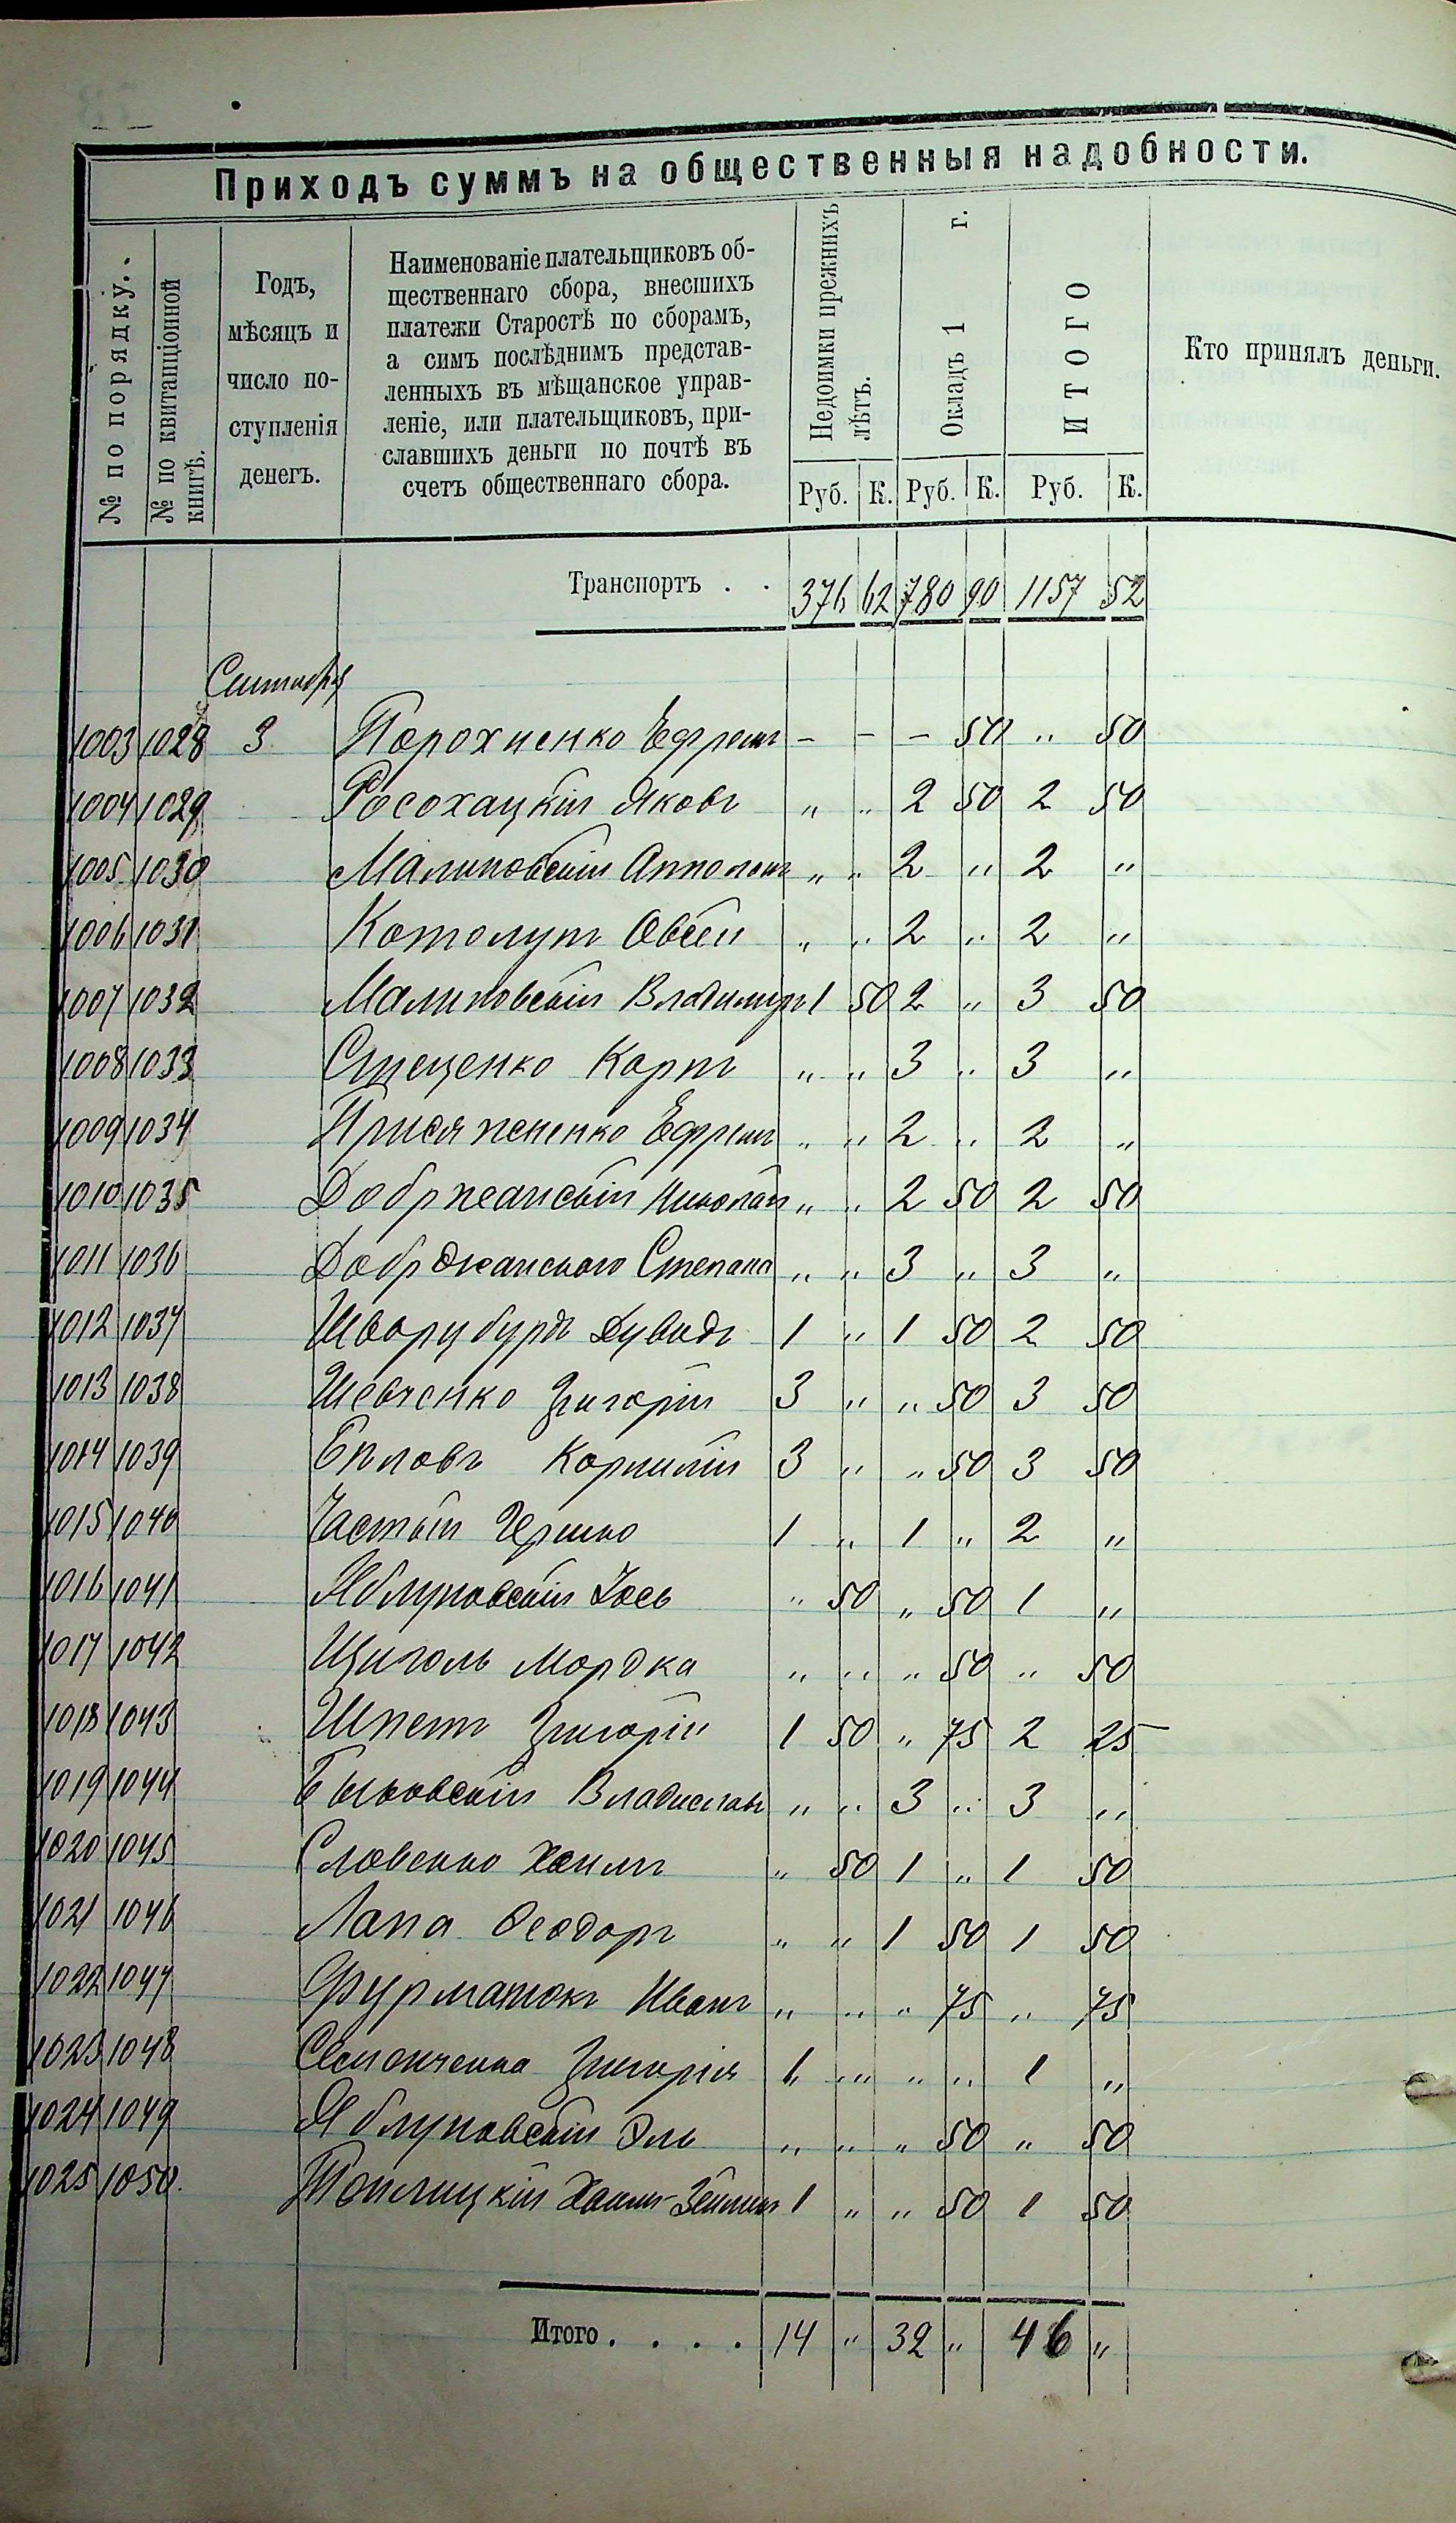 Приходъ суммъ на общественныя надобности.
№ по порядку.
№ по квитанціонной книгѣ.
Годъ,
мѣсяцъ и
число по-
ступленія
денегъ.
Наименованіе плательщиковъ об-
щественнаго сбора, внесшихъ
платежи Старостѣ по сборамъ,
а симъ послѣднимъ представ-
ленныхъ въ мѣщанское управ-
леніе, или плательщиковъ, при-
славшихъ деньги по почтѣ въ
счетъ общественнаго сбора.
Недоимки прежнихъ лѣтъ.
Окладъ 1 г.
ИТОГО
Кто принялъ деньги.
Руб. К. Руб. К. Руб. К.
Транспортъ . . 376 62 780 90 1157 52
Сентября
1003 1028 3 Порохненко Ефремъ - - - 50 " 50
1004 1029 Росохацкій Яковъ " " 2 50 2 50
1005 1030 Малиновскій Апполонъ " " 2 " 2 "
1006 1031 Котолупъ Овсей " " 2 " 2 "
1007 1032 Малиновскій Владимиръ 1 50 2 " 3 50
1008 1033 Стеценко Карпъ " " 3 " 3 "
1009 1034 Присяжненко Ефремъ " " 2 " 2 "
1010 1035 Добржанскій Николай " " 2 50 2 50
1011 1036 Добржанского Степана " " 3 " 3 "
1012 1037 Шварцбурдъ Дувидъ 1 " 1 50 2 50
1013 1038 Шевченко Григорій 3 " " 50 3 50
1014 1039 Корнилій 3 " " 50 3 50
1015 1040 Частый Гершко 1 " 1 " 2 "
1016 1041 Яблуновскій Іось " 50 " 50 1 "
1017 1042 Щиголь Мордка " " " 50 " 50
1018 1043 Шпетъ Григорій 1 50 " 75 2 25
1019 1044 Быковскій Владиславъ " " 3 " 3 "
1020 1045 Словенко Хаимъ " 50 1 " 1 50
1021 1046 Лапа Феодоръ " " 1 50 1 50
1022 1047 Фурманюкъ Иванъ " " " 75 " 75
1023 1048 Семенченка Григорія 1 " " " 1 "
1024 1049 Яблуновскій Эль " " " 50 " 50
1025 1050 Теплицкій Хаимъ-Зейликъ 1 " " 50 1 50
Итого . . . . 14 " 32 " 46 "